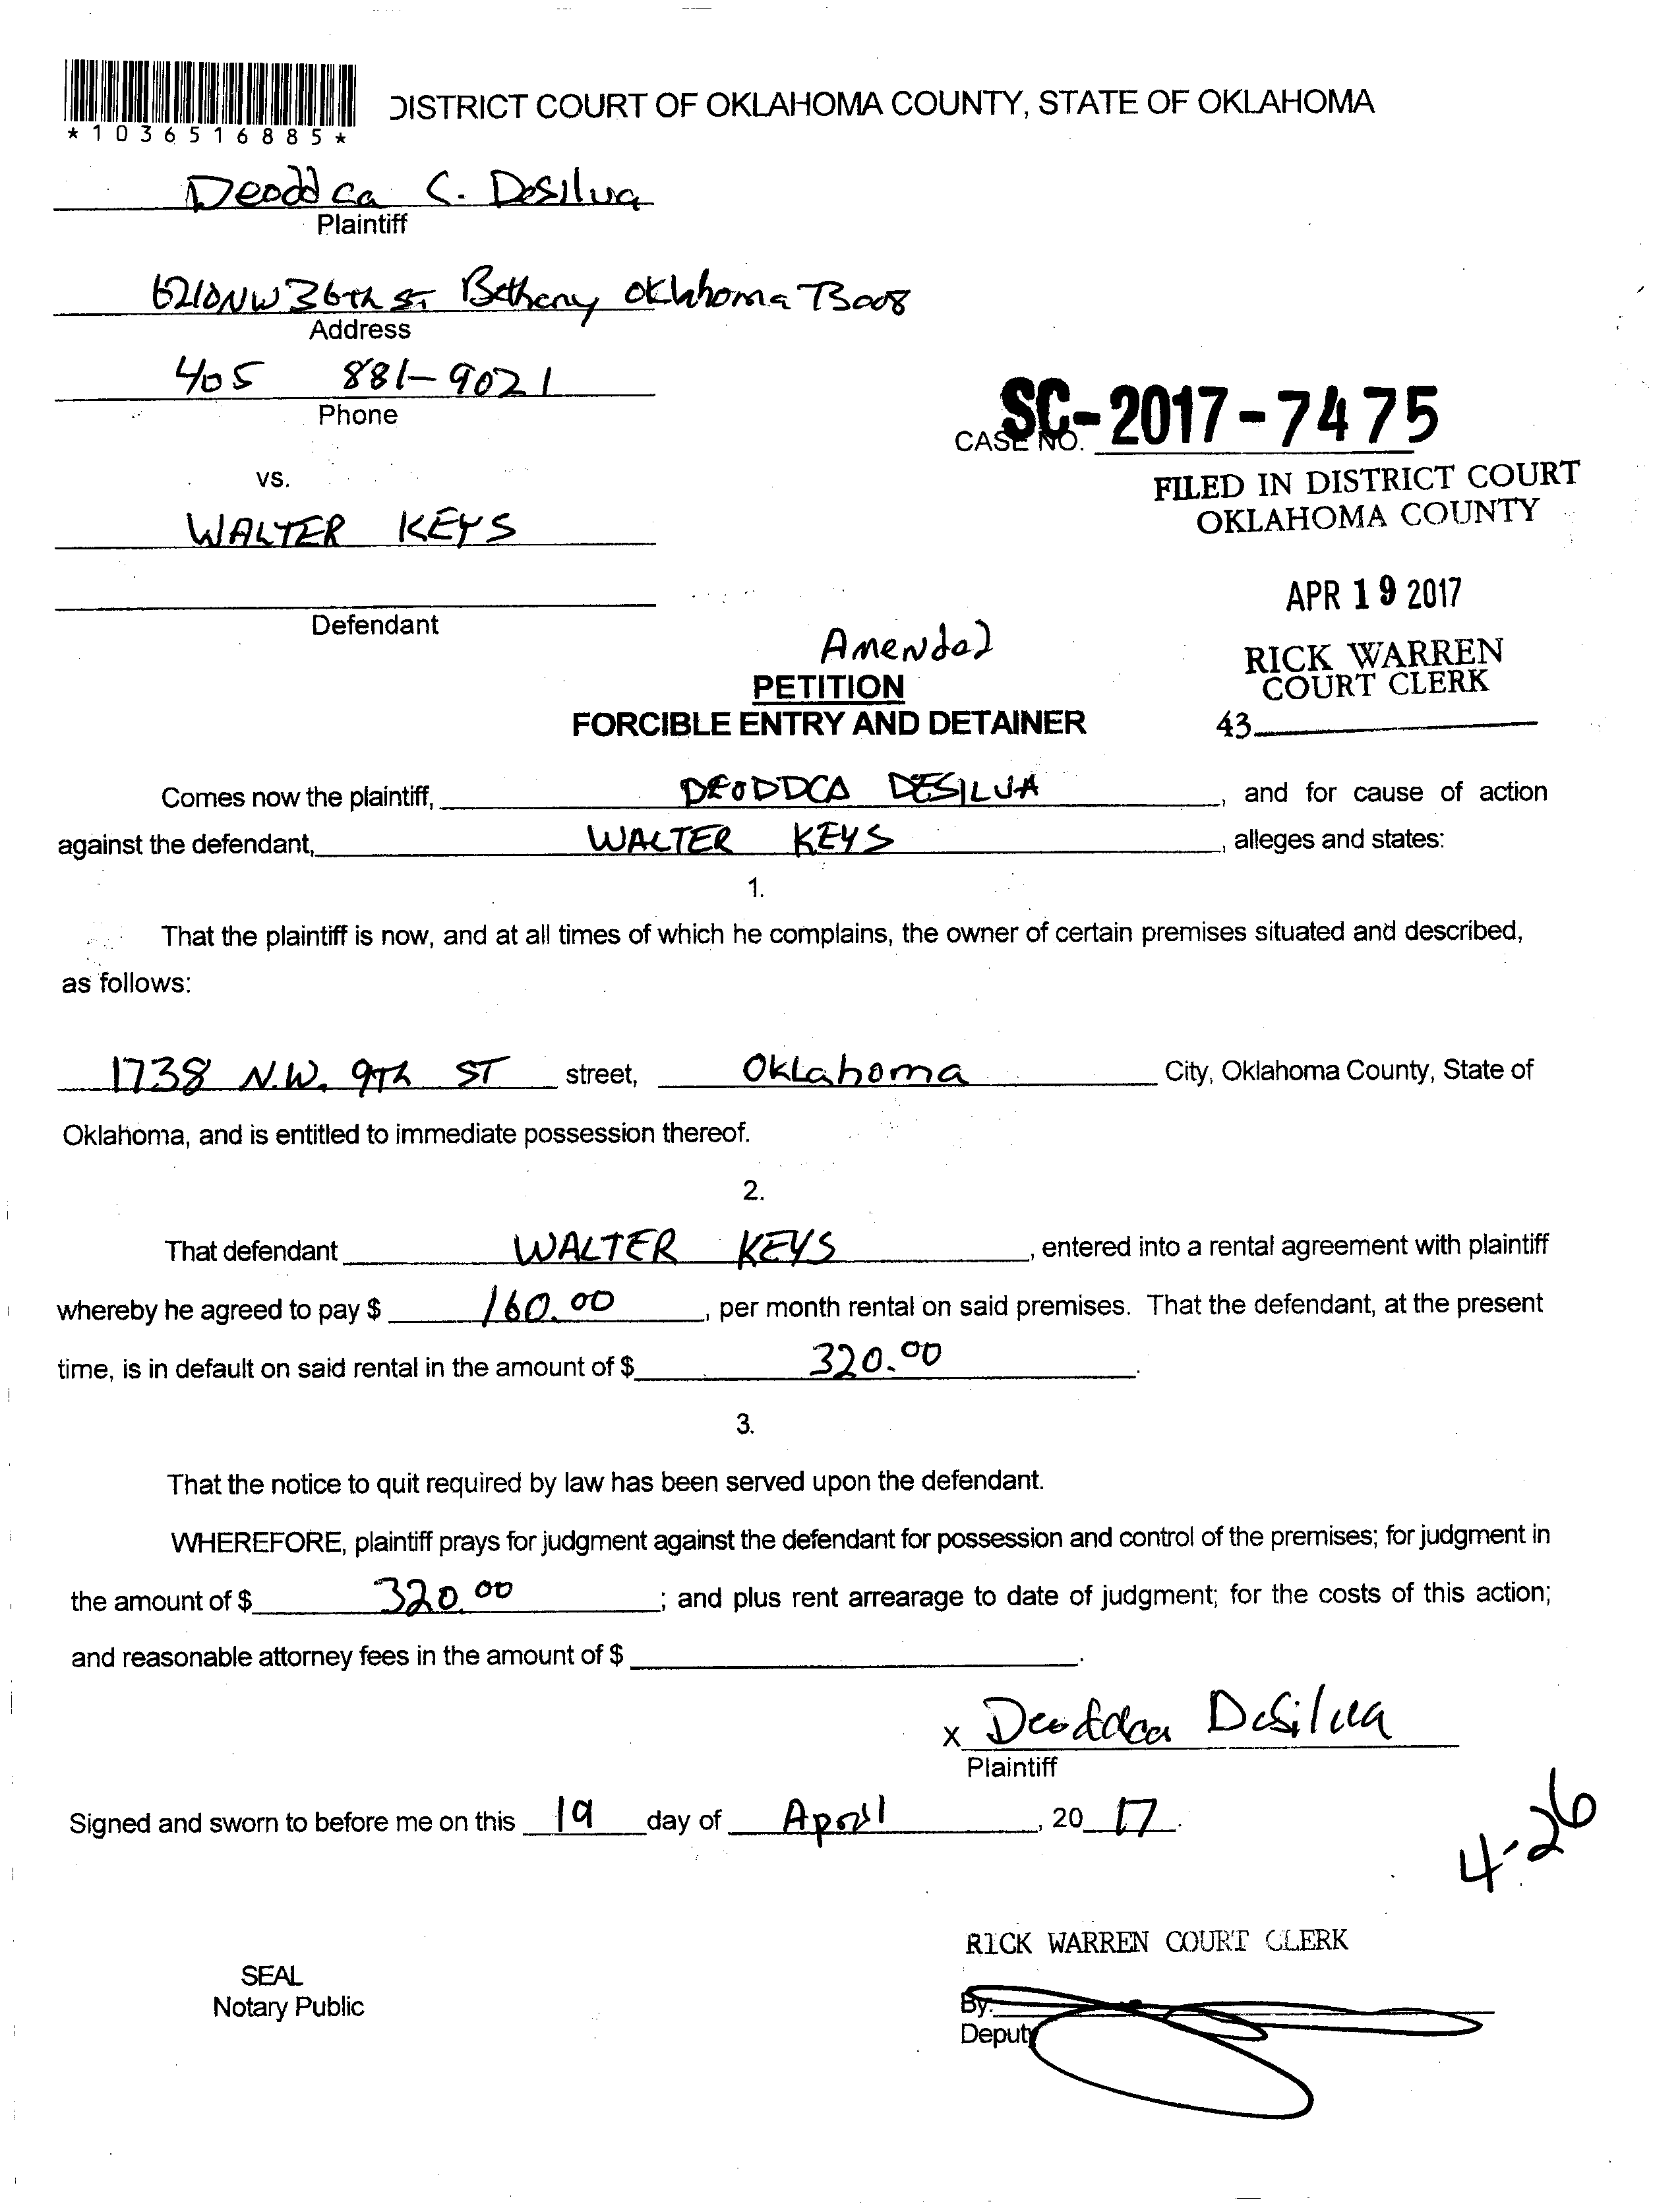 *1036516885*
DISTRICT COURT OF OKLAHOMA COUNTY, STATE OF OKLAHOMA
Deoddca C. Desilva
Plaintiff
6210 NW 36th St Bethany Oklahoma 73008
Address
405 881-9021
Phone
SC-2017-7475
CASE NO.
vs.
FILED IN DISTRICT COURT
OKLAHOMA COUNTY
WALTER KEYS
APR 19 2017
Defendant
Amended
RICK WARREN
COURT CLERK
PETITION
FORCIBLE ENTRY AND DETAINER
43
Comes now the plaintiff, DEODDCA DESILVA, and for cause of action
against the defendant, WALTER KEYS, alleges and states:
1.
That the plaintiff is now, and at all times of which he complains, the owner of certain premises situated and described,
as follows:
1738 N.W. 9th ST street, Oklahoma City, Oklahoma County, State of
Oklahoma, and is entitled to immediate possession thereof.
2.
That defendant WALTER KEYS, entered into a rental agreement with plaintiff
whereby he agreed to pay $ 160.00, per month rental on said premises. That the defendant, at the present
time, is in default on said rental in the amount of $ 320.00.
3.
That the notice to quit required by law has been served upon the defendant.
WHEREFORE, plaintiff prays for judgment against the defendant for possession and control of the premises; for judgment in
the amount of $ 320.00; and plus rent arrearage to date of judgment; for the costs of this action;
and reasonable attorney fees in the amount of $ .
x Deoddca DeSilva
Plaintiff
Signed and sworn to before me on this 19 day of April, 20 17.
4-26
RICK WARREN COURT CLERK
SEAL
Notary Public
By:
Deputy